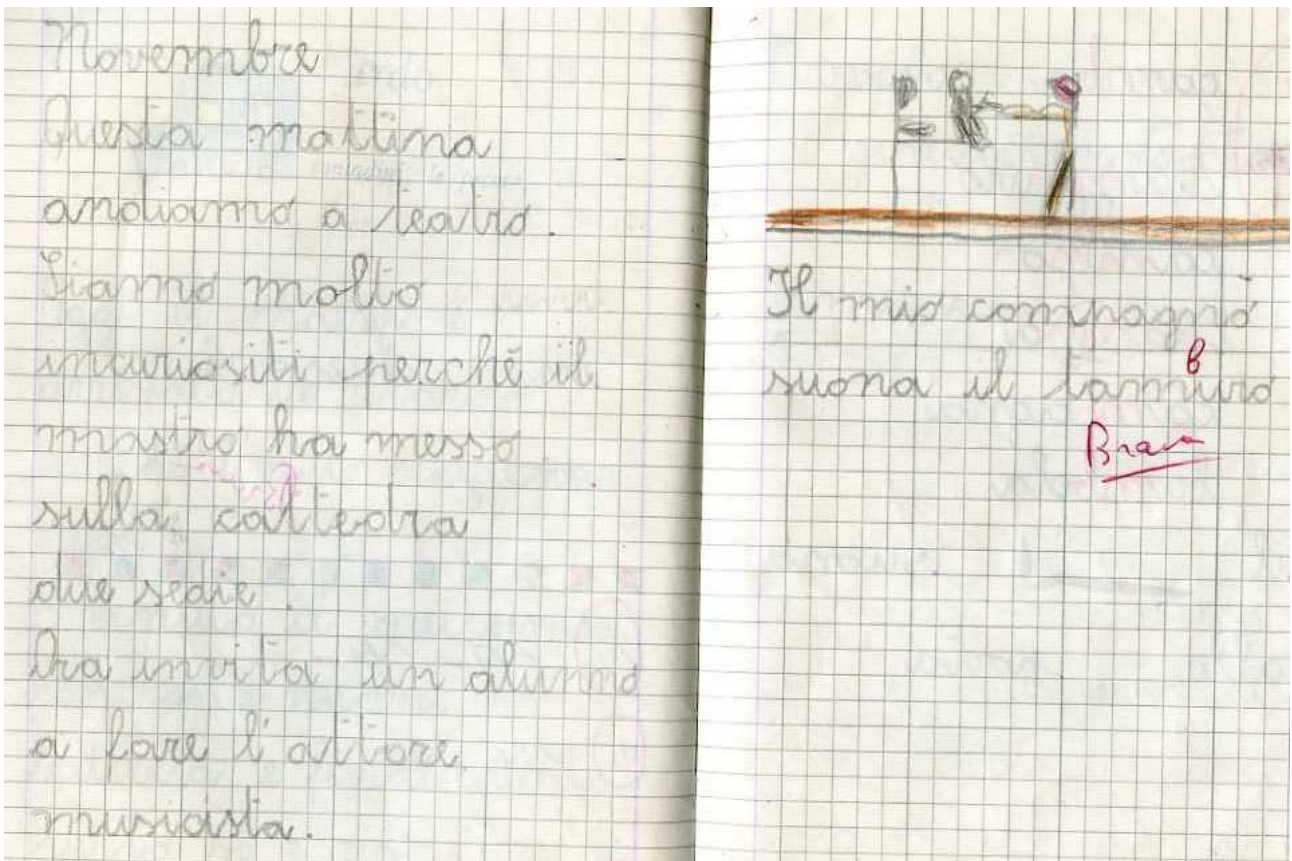 Novembre
Questa mattina
andiamo a teatro.
Siamo molto
incuriositi perché il
mastro ha messo
sulla cattedra
due sedie.
Ora invita un alunno
a fare l'attore
musicista.
Il mio compagno
b
suona il tamuro
Brava